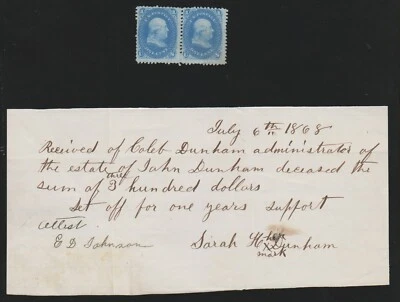 July 6th 1868
Received of Caleb Dunham administrator of
the estate of John Dunham deceased the
sum of three 3 hundred dollars
Set off for one years support
Attest
E D Johnson Sarah H her x Dunham
mark